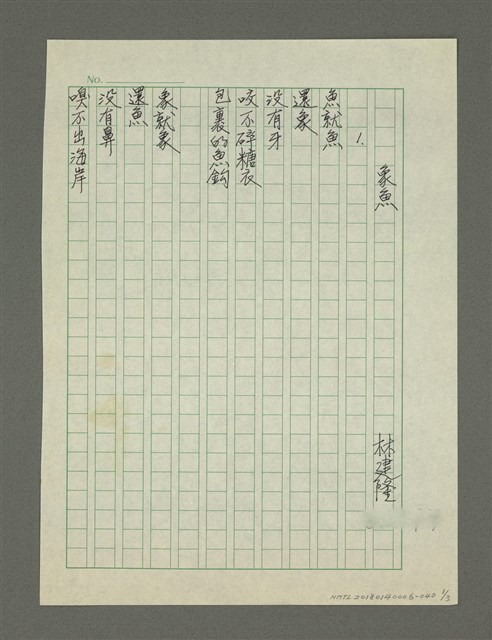 No.
象魚
林建隆
1.
魚就魚
還象
沒有牙
咬不碎糖衣
包裹的魚鉤
象就象
還魚
沒有鼻
嗅不出海岸
NMTL20180140006-040 1/3